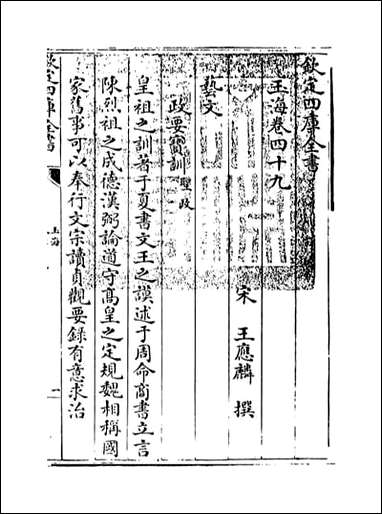 欽定四庫全書
玉海卷四十九
宋 王應麟 撰
藝文
政要寶訓 聖政
皇祖之訓著于夏書文王之謨述于周命商書立言
陳烈祖之成德漢弼論道守髙皇之定規魏相稱國
家舊事可以奉行文宗讀貞觀要録有意求治
欽定四庫全書
玉海
一